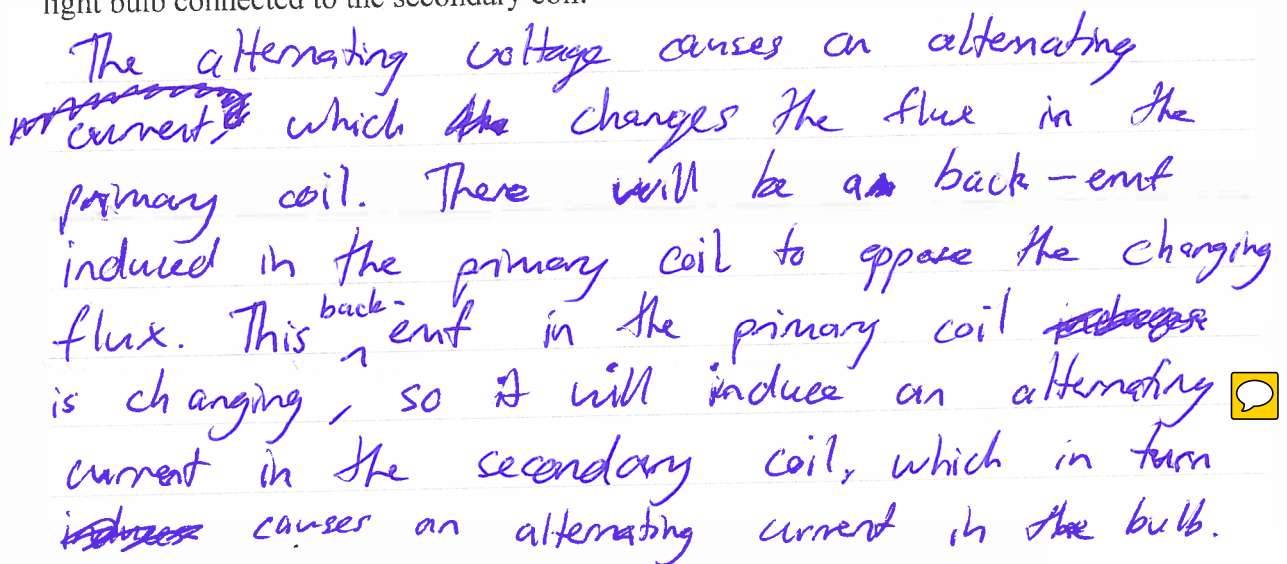 light bulb connected to the secondary coil.
The alternating voltage causes an alternating
current, which changes the flux in the
primary coil. There will be a back-emf
induced in the primary coil to oppose the changing
flux. This back-emf in the primary coil
is changing, so it will induce an alternating
current in the secondary coil, which in turn
causes an alternating current in the bulb.